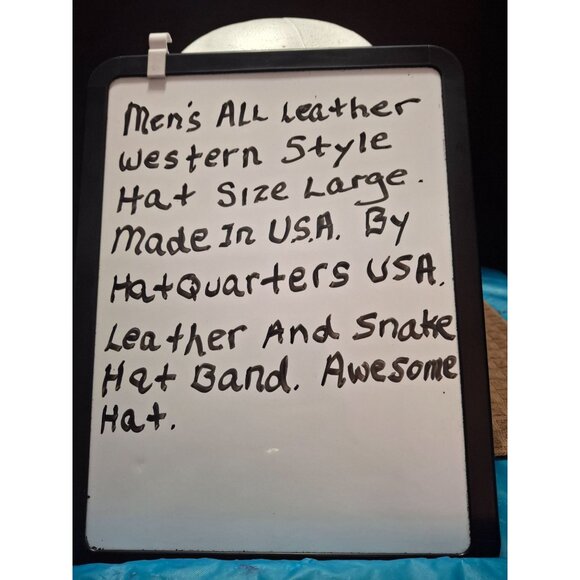 Men's ALL Leather
Western Style
Hat Size Large.
Made In U.S.A. By
HatQuarters USA.
Leather And Snake
Hat Band. Awesome
Hat.